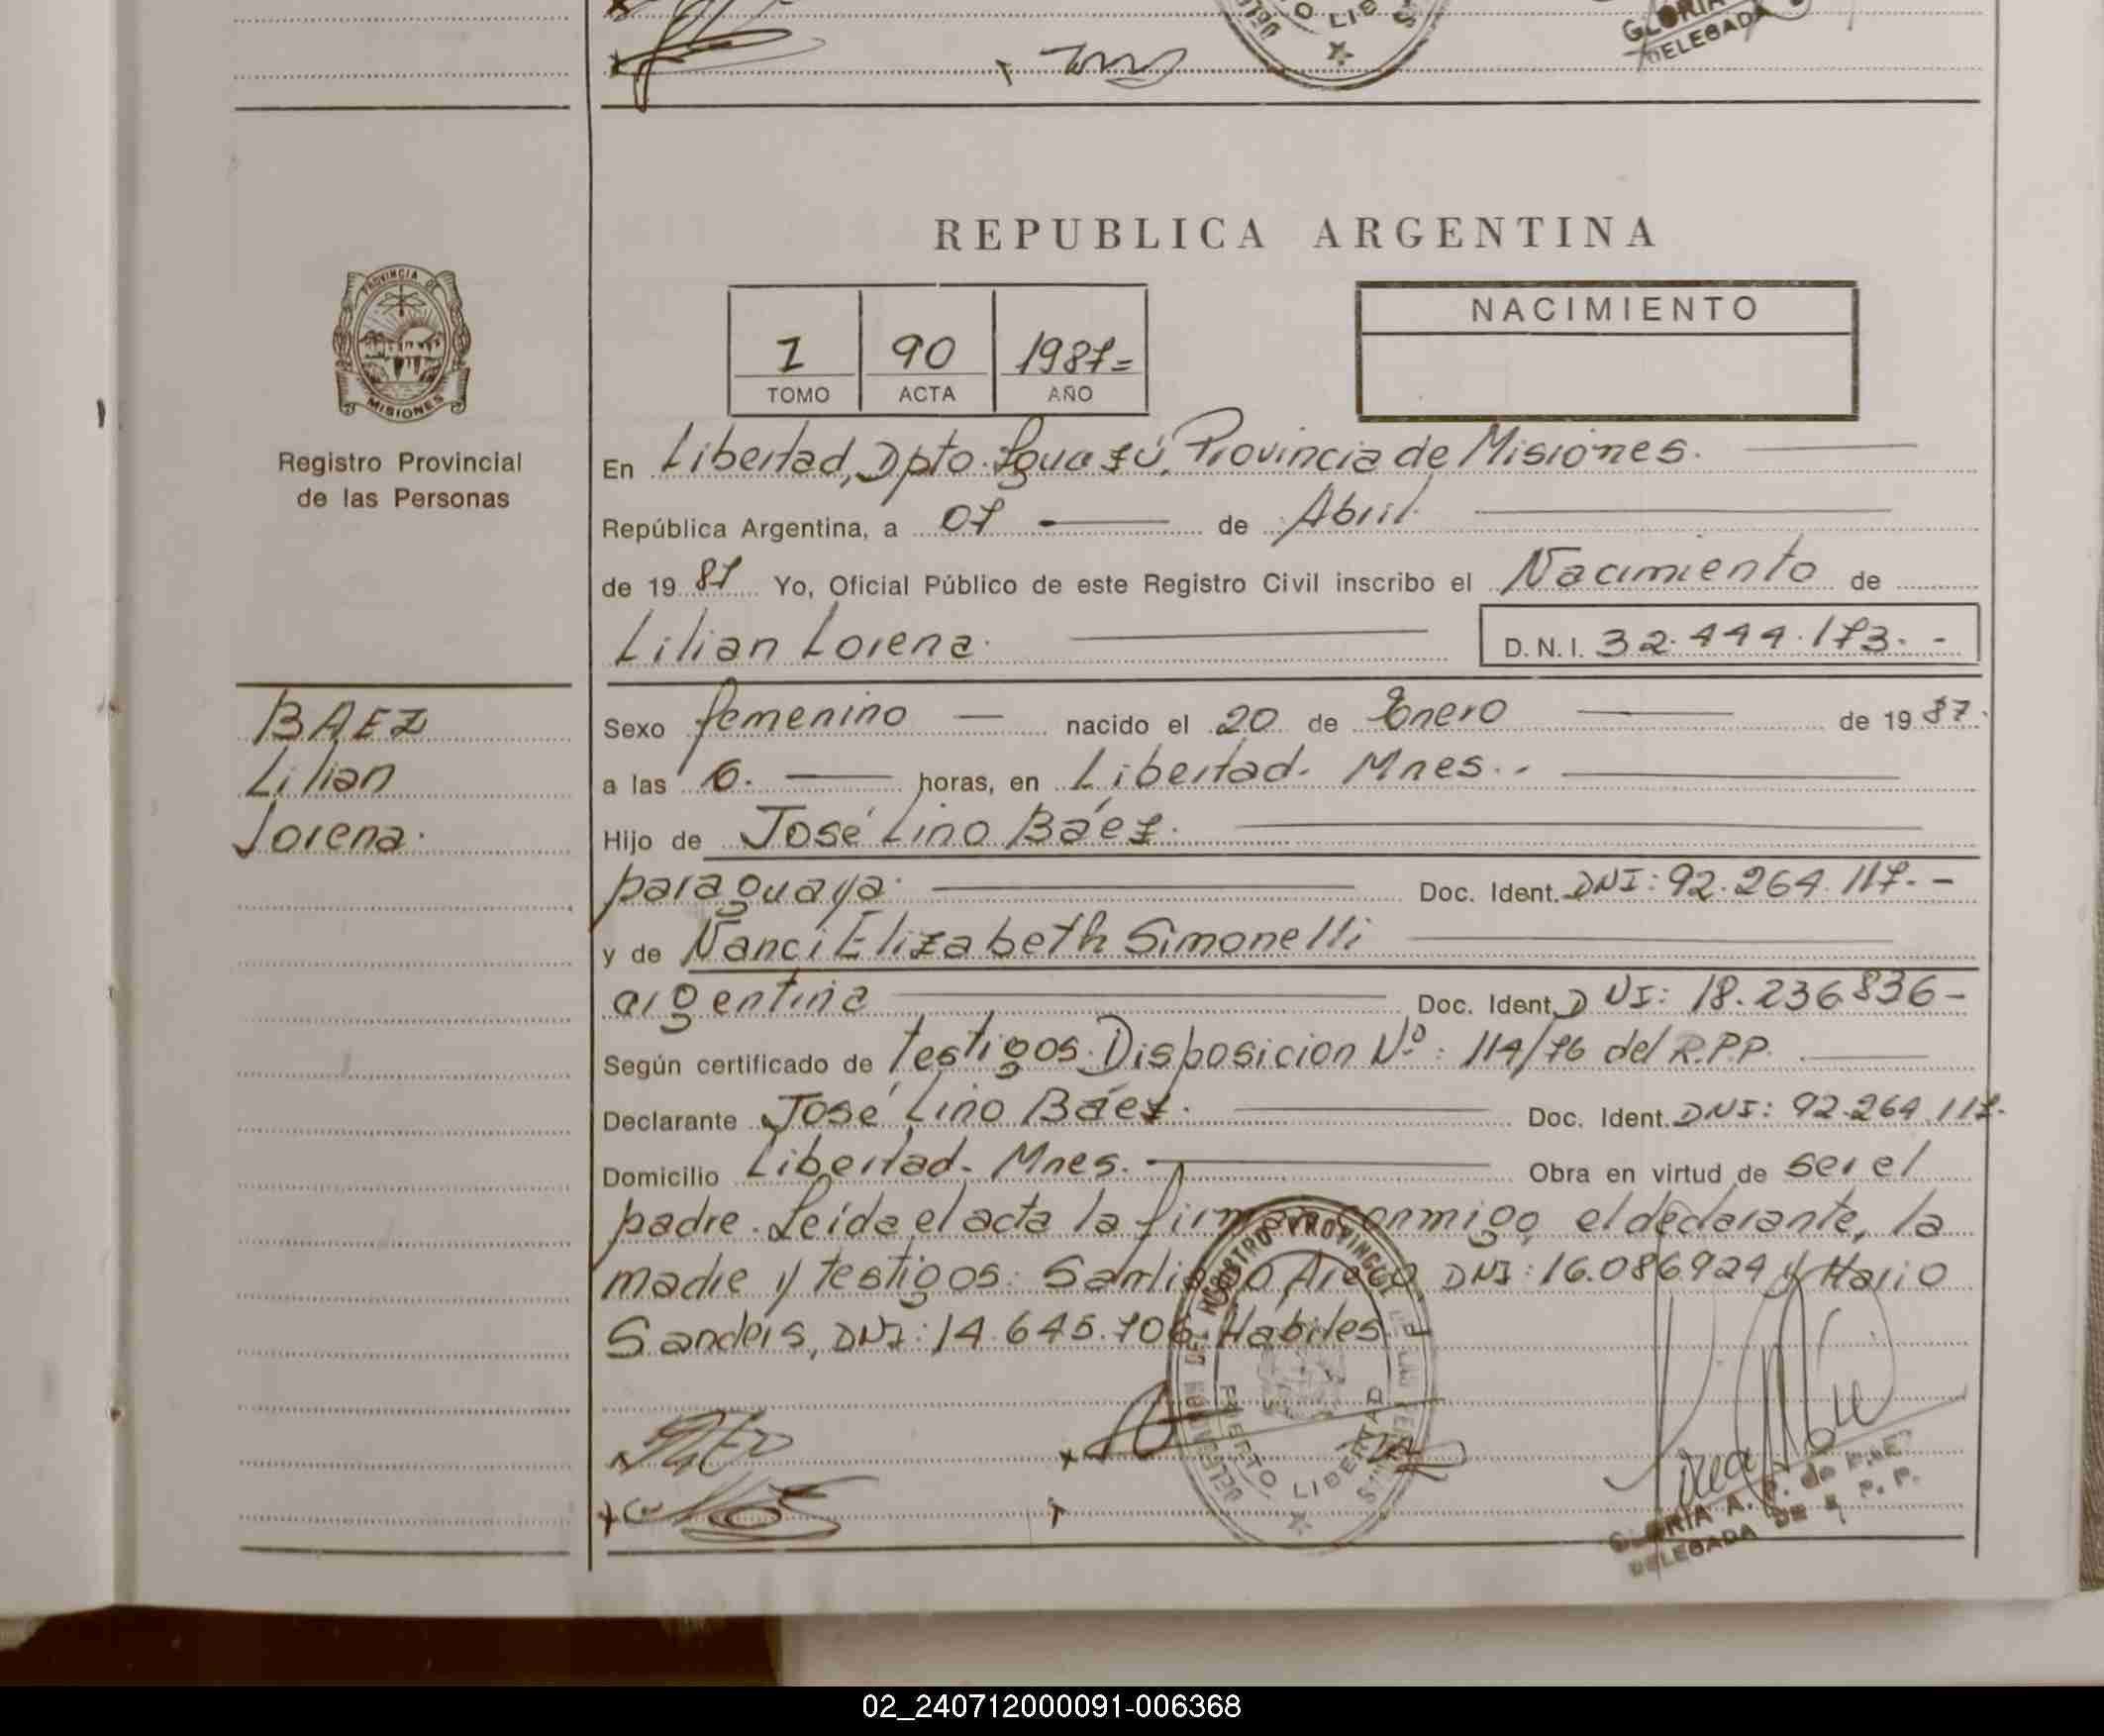 GLORIA
DELEGADA
REPUBLICA ARGENTINA
PROVINCIA DE
MISIONES
Registro Provincial
de las Personas
I 90 1987=
TOMO ACTA AÑO
NACIMIENTO
En Libertad, Dpto. Iguazú, Provincia de Misiones.
República Argentina, a 07 de Abril
de 19 87 Yo, Oficial Público de este Registro Civil inscribo el Nacimiento de
Lilian Lorena. D.N.I. 32.444.173.-
BAEZ
Lilian
Lorena.
Sexo femenino — nacido el 20 de Enero de 19 87.
a las 6. — horas, en Libertad. Mnes..
Hijo de José Lino Báez.
paraguaya. Doc. Ident. DNI: 92.264.117.-
y de Nanci Elizabeth Simonelli
argentina Doc. Ident. DNI: 18.236.836-
Según certificado de testigos. Disposicion Nº: 114/76 del R.P.P.
Declarante José Lino Báez. Doc. Ident. DNI: 92.264.117.
Domicilio Libertad. Mnes. Obra en virtud de ser el
padre. Leída el acta la firman conmigo, el declarante, la
madre y testigos: DNI: 16.086.924 y Mario
Sanders, DNI: 14.645.706. Habiles.
DELEGACION DEL REGISTRO PROVINCIAL DE LAS PERSONAS
PUERTO LIBERTAD
GLORIA A. P. de
DELEGADA DE R. P. P.
02_240712000091-006368